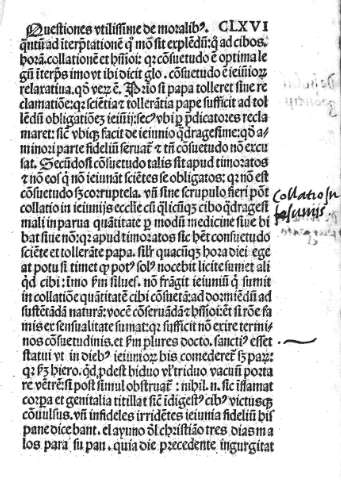 Questiones vtilissime de moralibꝰ. CLXVI
qutũ ad īterp̃tationē qͣ mõ sit explēdũ: qͣ ad cibos.
horã. collationē et hmõi: qꝛ cõsuetudo ē optima le
gũ īterp̃s imo vt ibi dicit glo. cõsuetudo ē ieiũioꝝ
relaxatiua. qõ veꝝ ē. Prio si papa tolleret siue re
clamatiõe: qꝛ sciētia & tollerãtia pape sufficit ad tol
lēdũ obligatiõeʒ ieiũij: secꝰ vbi ꝑ p̃dicatores recla
maret: sicut vbiqʒ facit de ieiunio qͣdragesime: qõ a
minori parte fideliũ seruat̃ & tñ cõsuetudo nõ excu
sat. Secũdo si cõsuetudo talis sit apud timoratos
& nõ eos q̃ nõ ieiunãt sciētes se obligatos: qꝛ nõ est
cõsuetudo sʒ corruptela. vñ sine scrupulo fieri põt
collatio in ieiunijs ecclesie cũ qͣlicũqʒ cibo qͣdragesi
mali in parua quãtitate ꝑ modũ medicine siue bi
bat siue nõ: qꝛ apud timoratos sic hēt consuetudo
sciēte et tollerãte papa. silꝛ quacũqʒ hora diei ege
at potu si timet qͣ potꝰ solꝰ nocebit licite sumet ali
qͣd cibi: īmo ẽm silues. nõ frãgit ieiuniũ qͣ sumit
in collatiõe quãtitatē cibi cõsuetã: ad dormiēdũ ad
sustētãdã naturã: voce cõseruãdã & hmõi: et si rõe fa
mis ex sensualitate sumat: qꝛ sufficit nõ exire termi
nos cõsuetudinis. et ẽm plures docto. sanctiꝰ esset
statui vt in diebꝰ ieiunioꝝ bis comederet̃ sʒ parꝝ:
qꝛ ẽm hiero. qͣd ꝓdest biduo vl' triduo vacuũ porta
re vētrē: si post simul obstruat̃: nihil. n. sic īflamat
corpa et genitalia titillat sicut īdigestꝰ cibꝰ victusqʒ
cõuulsus. vñ infideles irridētes ieiunia fideliũ his
pane dicebant. el ayuno d'l christião tres dias ma
los para su pan. quia die precedente ingurgitat
Collatio in
Ieiunijs.